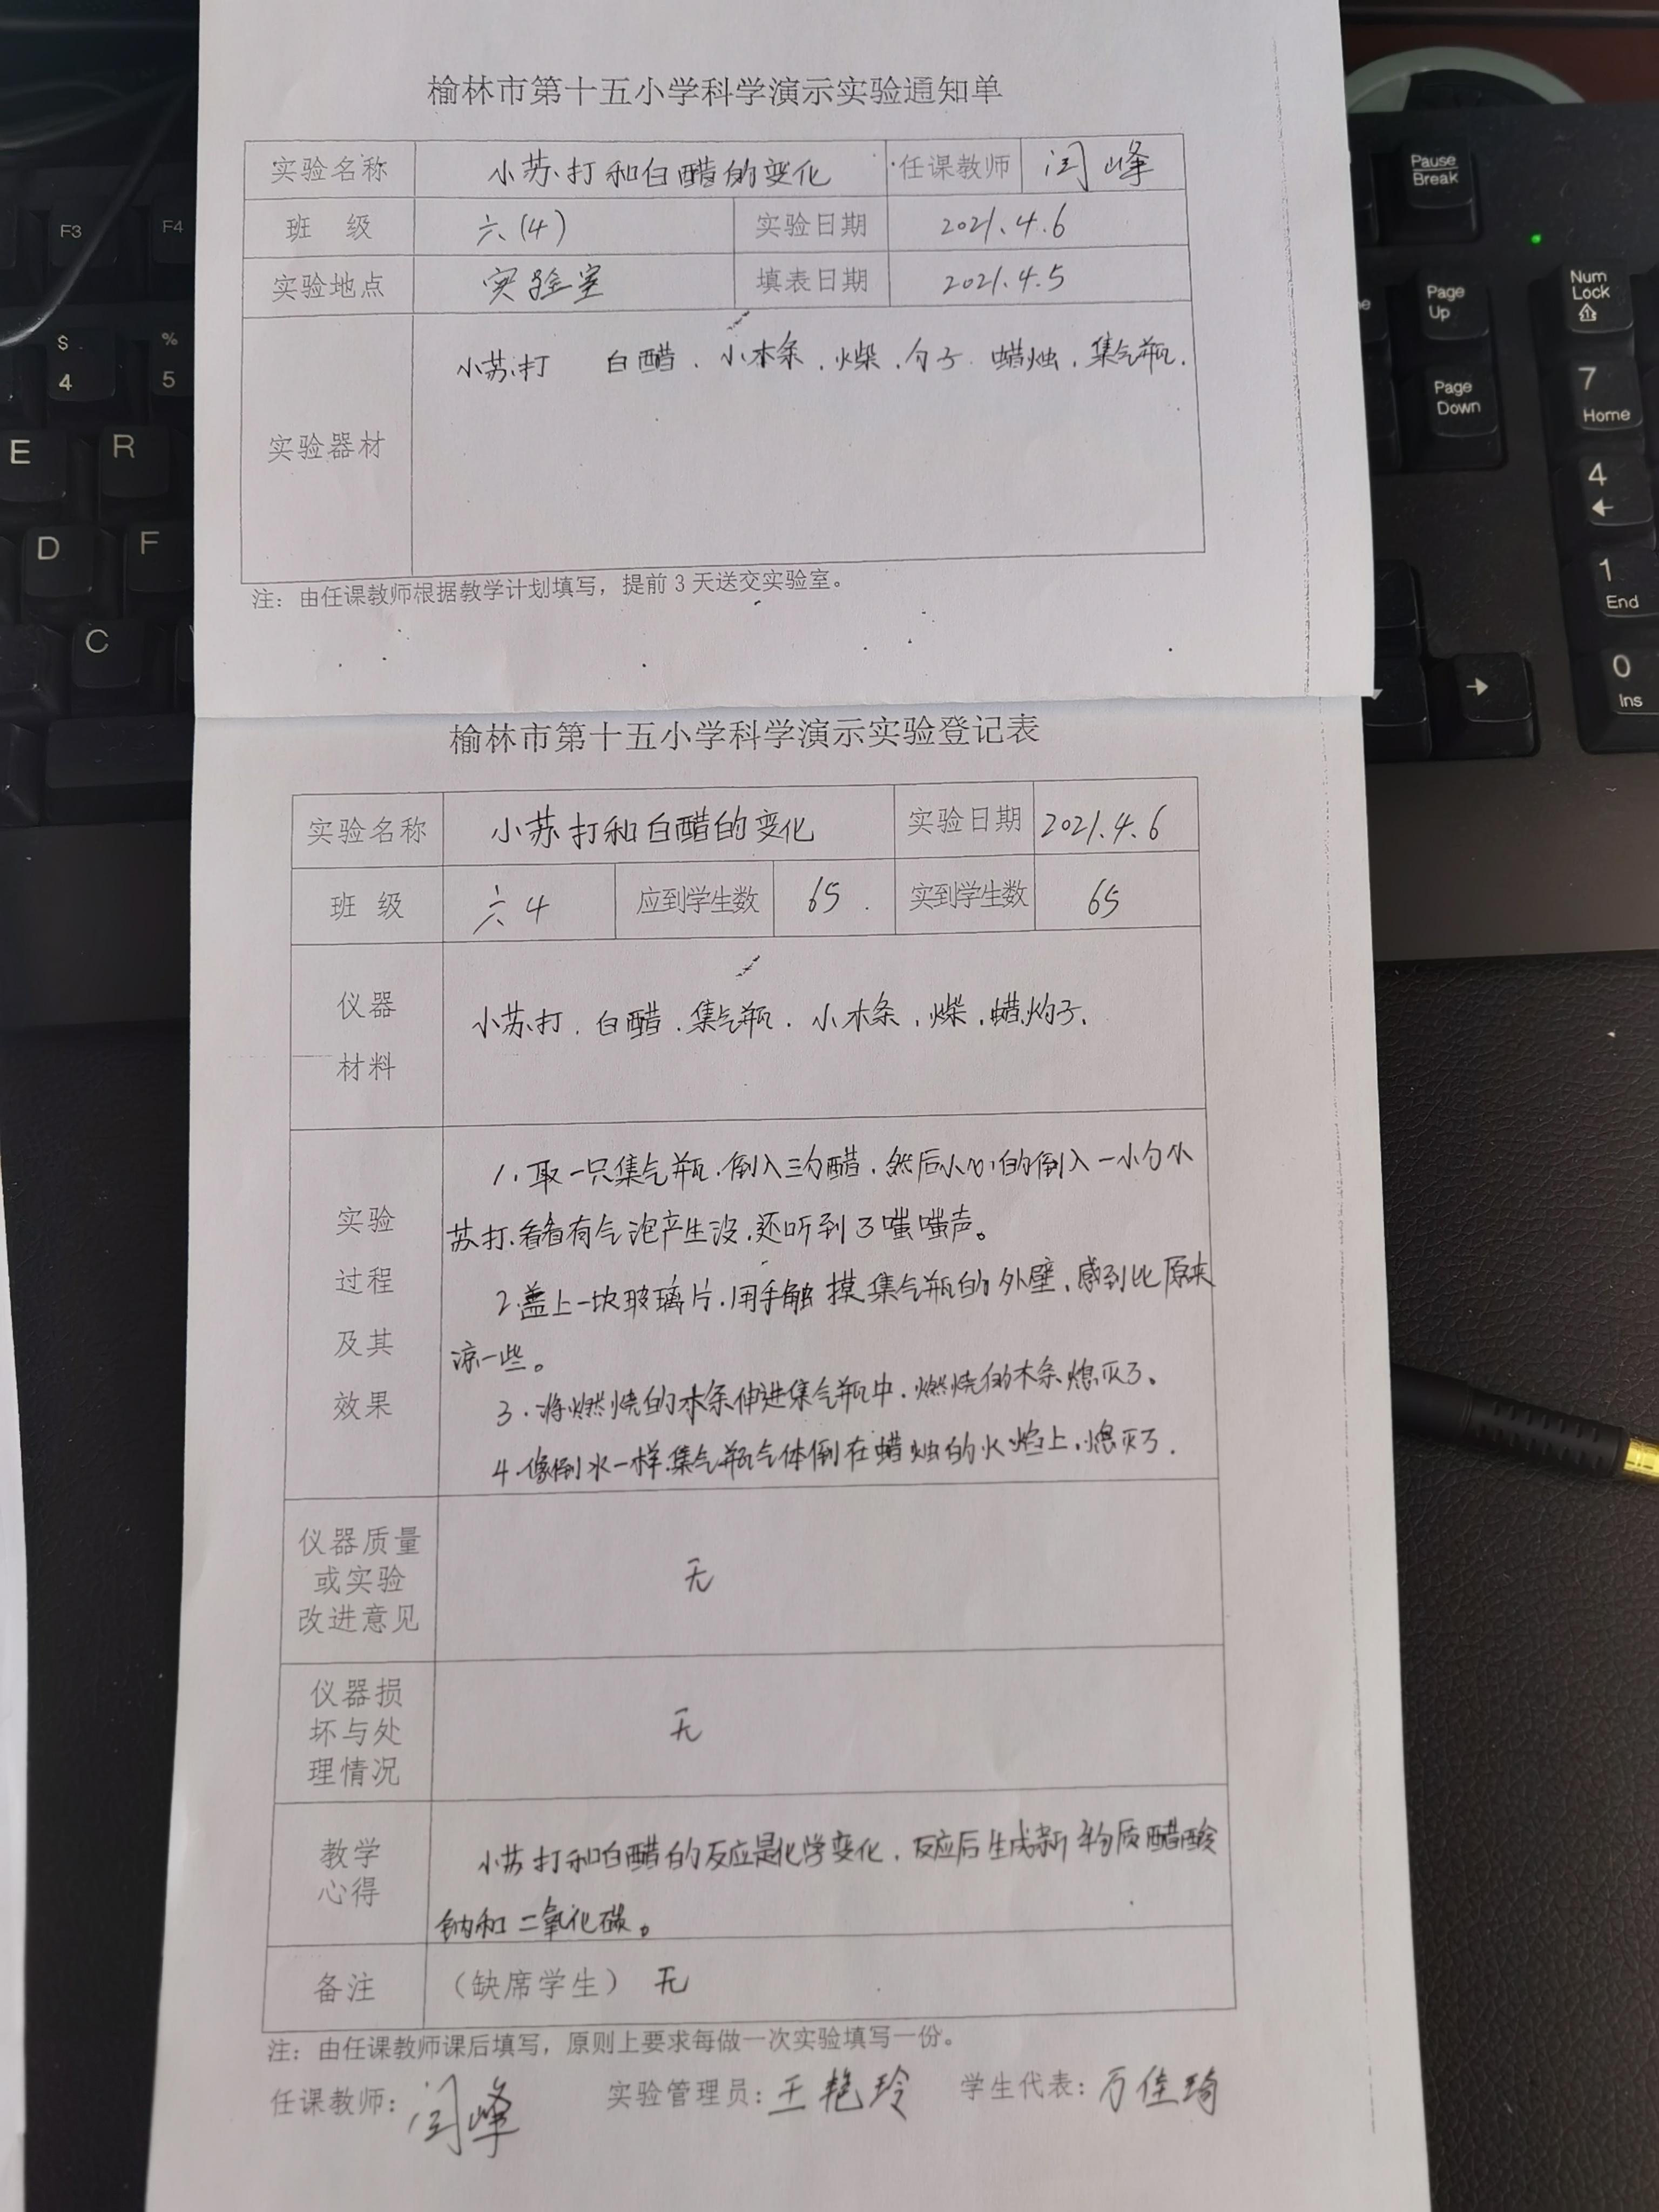 榆林市第十五小学科学演示实验通知单
实验名称 小苏打和白醋的变化 任课教师 闫峰
班 级 六(4) 实验日期 2021.4.6
实验地点 实验室 填表日期 2021.4.5
实验器材 小苏打 白醋．小木条．火柴．勺子．蜡烛．集气瓶．
注：由任课教师根据教学计划填写，提前3天送交实验室。
榆林市第十五小学科学演示实验登记表
实验名称 小苏打和白醋的变化 实验日期 2021.4.6
班 级 六4 应到学生数 65 实到学生数 65
仪器
材料
小苏打．白醋．集气瓶．小木条．火柴．蜡勺子．
实验
过程
及其
效果
1．取一只集气瓶．倒入三勺醋．然后小心的倒入一小勺小
苏打．看看有气泡产生没．还听到了嗤嗤声。
2．盖上一块玻璃片．用手触摸集气瓶的外壁．感到比原来
凉一些。
3．将燃烧的木条伸进集气瓶中．燃烧的木条熄灭了。
4．像倒水一样．集气瓶气体倒在蜡烛的火焰上．熄灭了．
仪器质量
或实验
改进意见
无
仪器损
坏与处
理情况
无
教学
心得
小苏打和白醋的反应是化学变化．反应后生成新物质醋酸
钠和二氧化碳。
备注 （缺席学生） 无
注：由任课教师课后填写，原则上要求每做一次实验填写一份。
任课教师：闫峰 实验管理员：王艳玲 学生代表：万佳琦
Pause
Break
F3
F4
$
4
%
5
E
R
D
F
C
Page
Up
Page
Down
Num
Lock
7
Home
4
1
End
0
Ins